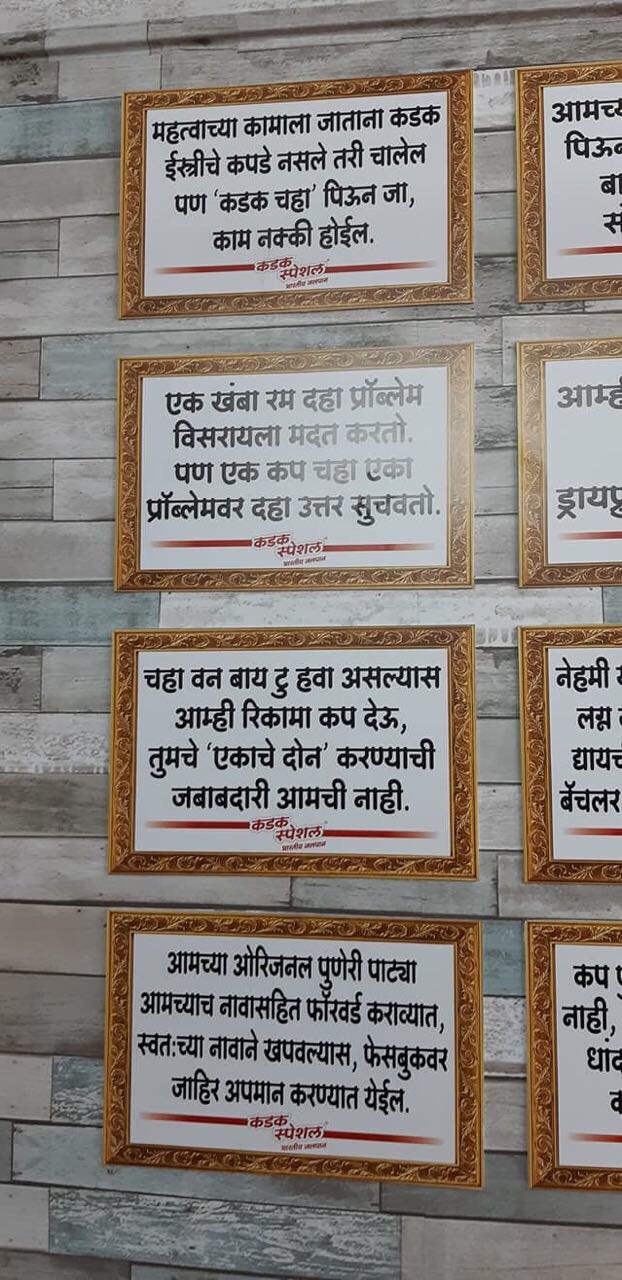 महत्वाच्या कामाला जाताना कडक
ईस्त्रीचे कपडे नसले तरी चालेल
पण ‘कडक चहा’ पिऊन जा,
काम नक्की होईल.
कडक
स्पेशल
भारतीय जलपान
एक खंबा रम दहा प्रॉब्लेम
विसरायला मदत करतो.
पण एक कप चहा एका
प्रॉब्लेमवर दहा उत्तर सुचवतो.
कडक
स्पेशल
भारतीय जलपान
चहा वन बाय टु हवा असल्यास
आम्ही रिकामा कप देऊ,
तुमचे ‘एकाचे दोन’ करण्याची
जबाबदारी आमची नाही.
कडक
स्पेशल
भारतीय जलपान
आमच्या ओरिजनल पुणेरी पाट्या
आमच्याच नावासहित फॉरवर्ड कराव्यात,
स्वत:च्या नावाने खपवल्यास, फेसबुकवर
जाहिर अपमान करण्यात येईल.
कडक
स्पेशल
भारतीय जलपान
नेहमी
लग्न
बॅचलर
कप
नाही,